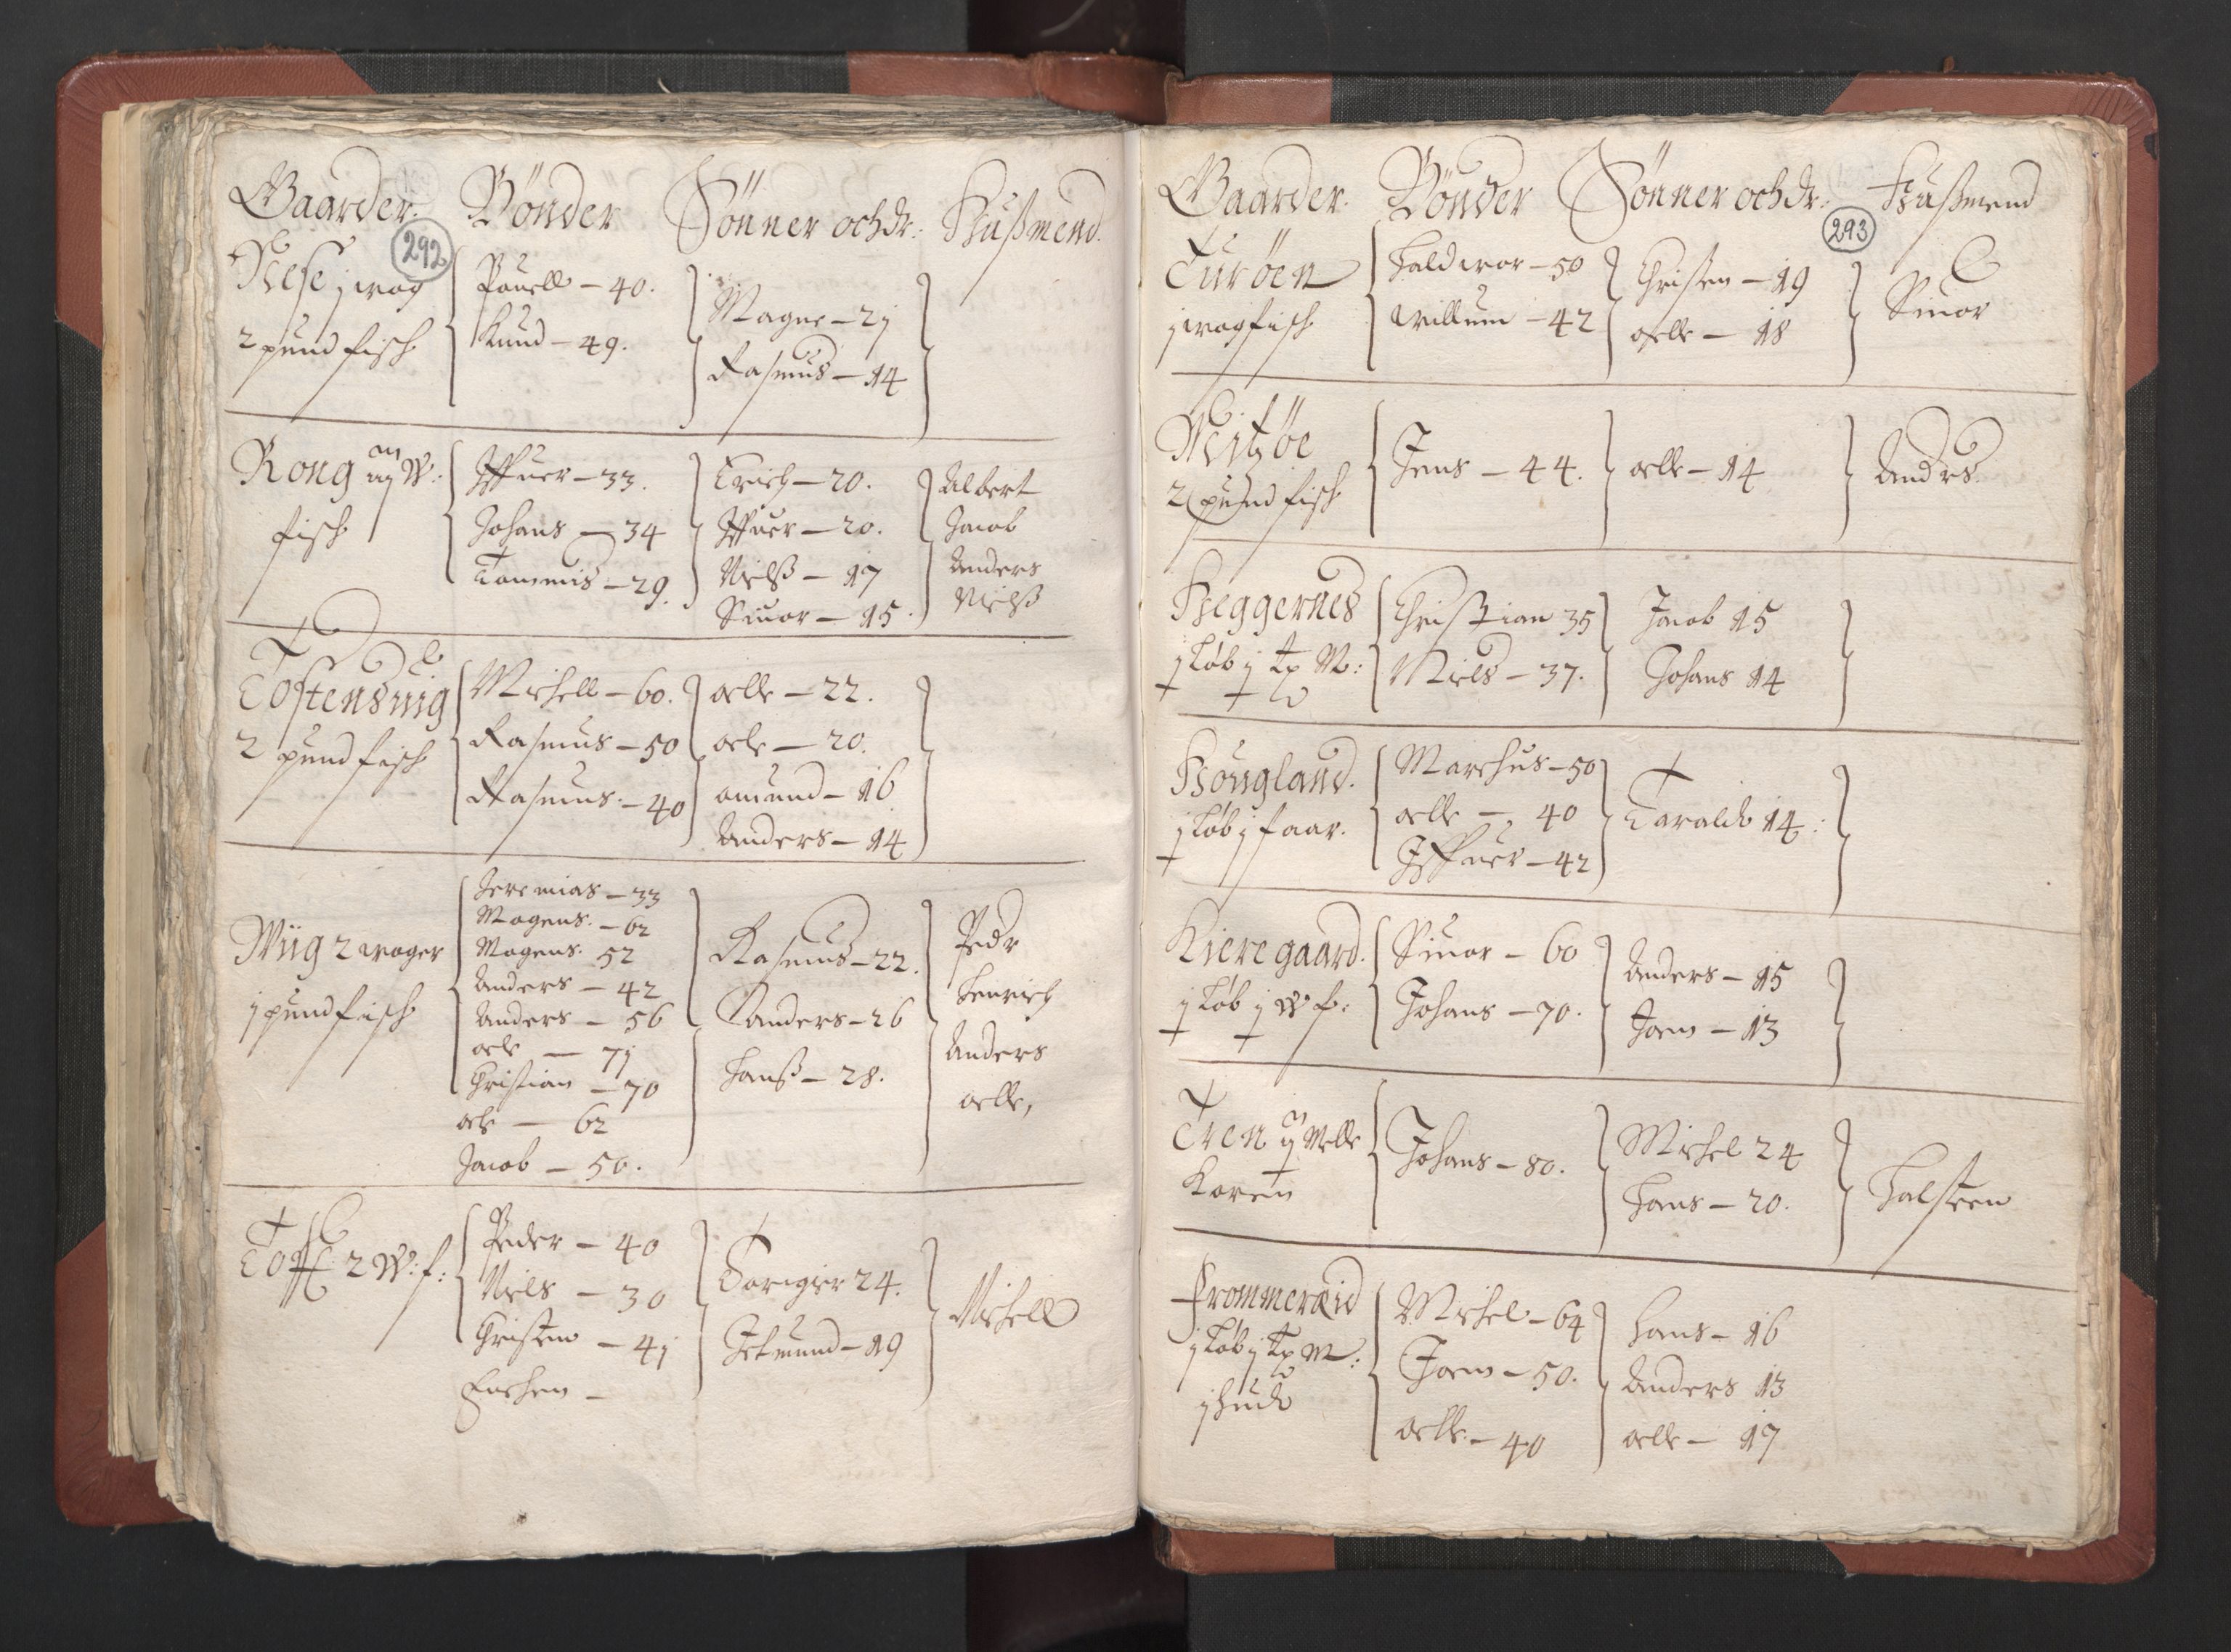 Gaarder. Bönder Sönner och dr: Hußmend.
292
Nese j wog
2 pund fisch
Pouell - 40.
Knud - 49.
Magne - 2j
Rasmus - 14
Rong W:
fisch
Iffuer - 33.
Johans - 34
Tommis - 29.
Erich - 20.
Iffuer - 20.
Nielß - 17
Siuor - 15.
Albert
Jacob
Anders
Nielß
Tostensuig
2 pund fisch
Michell - 60.
Rasmus - 50
Rasmus - 40
oelle - 22.
oele - 20.
omund - 16
Anders - 14
Wiig 2 woger
j pund fisch
Jeremias - 33
Mogens. - 62
Mogens. 52
Anders - 42
Anders - 56
oele - 7j
Christian - 70
ole - 62
Jacob - 50.
Rasmus - 22.
Anders - 26
Hanß - 28.
Pedr
Henrich
Anders
oelle,
Toff 2 W: f:
Peder - 40
Niels - 30
Christen - 4j
Enchen -
Torigier 24.
Jetmund - 19
Michell
Gaarder. Bönder Sönner och dr: Hußmend
293
Turöen
j wog fisch
Haldwor - 50
Willum - 42
Christen - 19
oelle - 18
Siuor
Nitzöe
2 pund fisch
Jens - 44.
oelle - 14
Andrs
Heggernes
j løb j tp M:
Christian 35
Niels - 37.
Jacob 15
Johans 14
Hougland.
j løb j faar.
Marchus - 50
oelle - 40
Iffuer - 42
Taralde 14:
Kieregaard.
j løb j W f:
Siuor - 60
Johans - 70.
Anders - 15
Joen - 13
Tren j Melle
Koren
Johans - 80.
Michel 24
Hans - 20.
Halsteen
Frommereid
j løb j tp M:
j hude
Michel - 64
Joen - 50.
oelle - 40
Hans - 16
Anders 13
oelle - 17